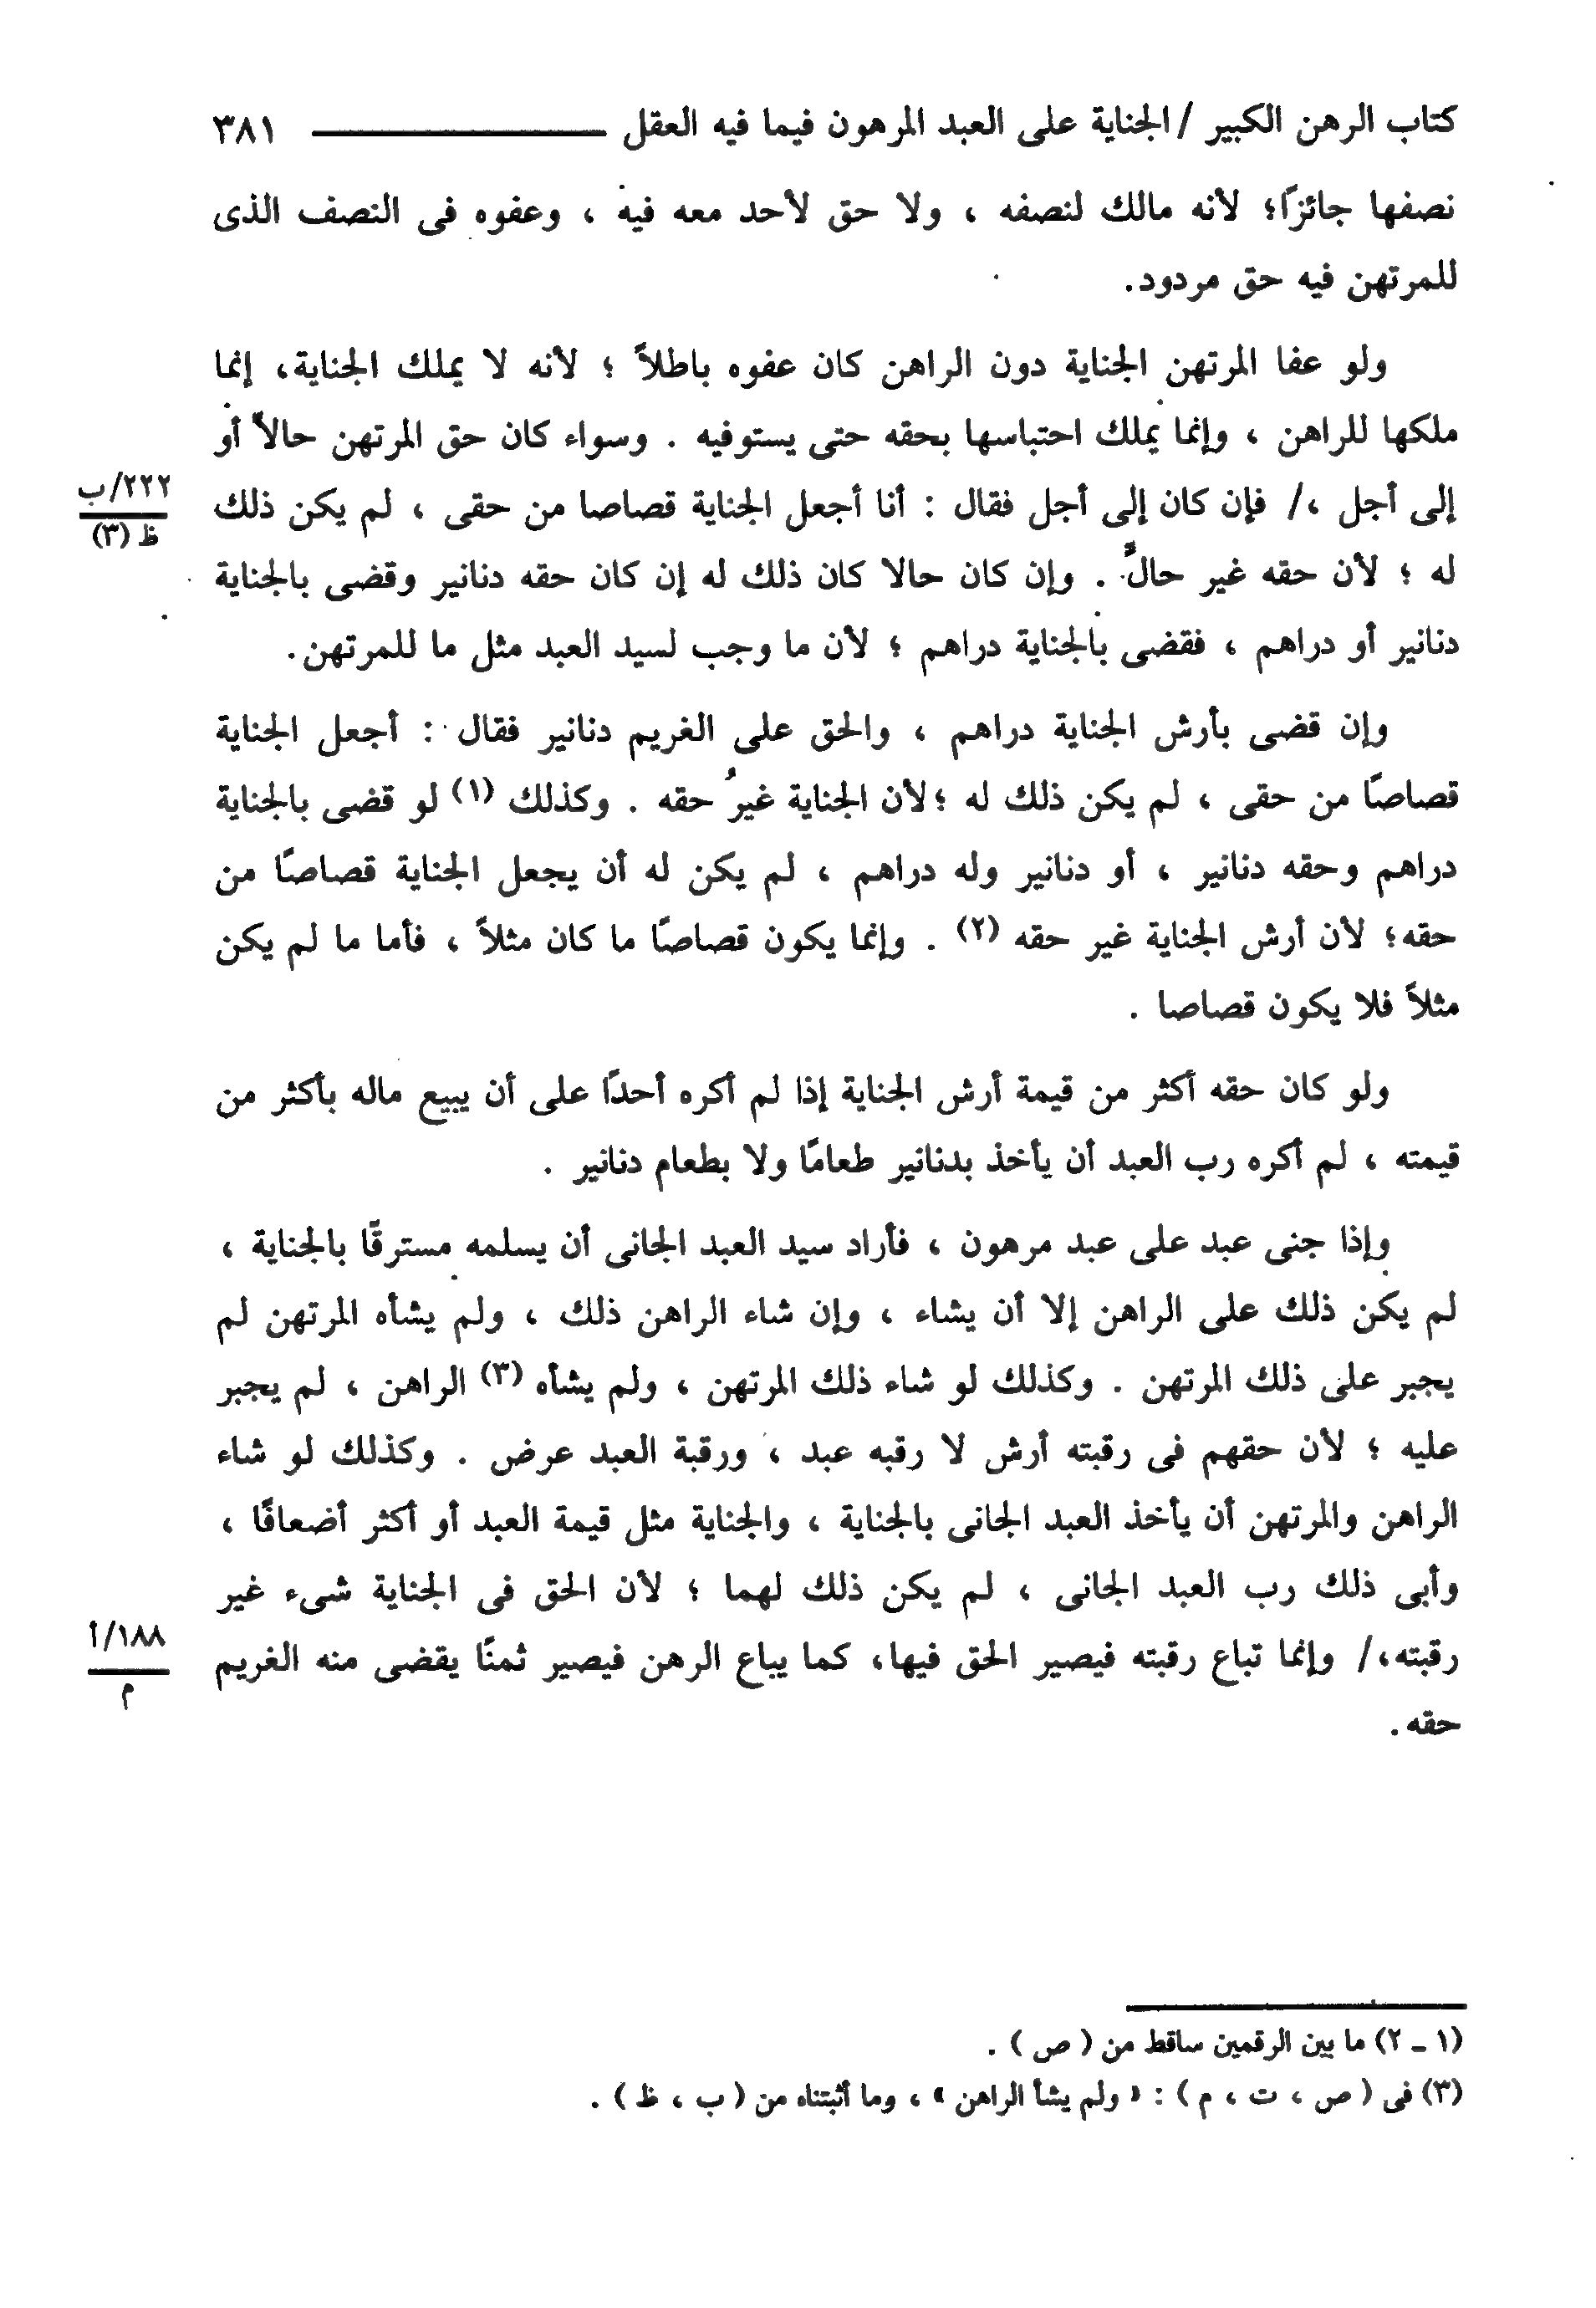 كتاب الرهن الكبير / الجناية على العبد المرهون فيما فيه العقل ٣٨١
نصفها جائزًا؛ لأنه مالك لنصفه ، ولا حق لأحد معه فيه ، وعفوه فى النصف الذى
للمرتهن فيه حق مردود.
ولو عفا المرتهن الجناية دون الراهن كان عفوه باطلاً ؛ لأنه لا يملك الجناية، إنما
ملكها للراهن ، وإنما يملك احتباسها بحقه حتى يستوفيه . وسواء كان حق المرتهن حالاً أو
إلى أجل ،/ فإن كان إلى أجل فقال : أنا أجعل الجناية قصاصا من حقى ، لم يكن ذلك
٢٢٢/ب
ظ (٣)
له ؛ لأن حقه غير حالٍّ . وإن كان حالا كان ذلك له إن كان حقه دنانير وقضى بالجناية
دنانير أو دراهم ، فقضى بالجناية دراهم ؛ لأن ما وجب لسيد العبد مثل ما للمرتهن.
وإن قضى بأرش الجناية دراهم ، والحق على الغريم دنانير فقال : أجعل الجناية
قصاصًا من حقى ، لم يكن ذلك له ؛لأن الجناية غيرُ حقه . وكذلك (١) لو قضى بالجناية
دراهم وحقه دنانير ، أو دنانير وله دراهم ، لم يكن له أن يجعل الجناية قصاصًا من
حقه؛ لأن أرش الجناية غير حقه (٢) . وإنما يكون قصاصًا ما كان مثلاً ، فأما ما لم يكن
مثلاً فلا يكون قصاصا .
ولو كان حقه أكثر من قيمة أرش الجناية إذا لم أكره أحدًا على أن يبيع ماله بأكثر من
قيمته ، لم أكره رب العبد أن يأخذ بدنانير طعامًا ولا بطعام دنانير .
وإذا جنى عبد على عبد مرهون ، فأراد سيد العبد الجانى أن يسلمه مسترقًا بالجناية ،
لم يكن ذلك على الراهن إلا أن يشاء ، وإن شاء الراهن ذلك ، ولم يشأه المرتهن لم
يجبر على ذلك المرتهن . وكذلك لو شاء ذلك المرتهن ، ولم يشأه (٣) الراهن ، لم يجبر
عليه ؛ لأن حقهم فى رقبته أرش لا رقبه عبد ، ورقبة العبد عرض . وكذلك لو شاء
الراهن والمرتهن أن يأخذ العبد الجانى بالجناية ، والجناية مثل قيمة العبد أو أكثر أضعافًا ،
وأبى ذلك رب العبد الجانى ، لم يكن ذلك لهما ؛ لأن الحق فى الجناية شىء غير
رقبته،/ وإنما تباع رقبته فيصير الحق فيها، كما يباع الرهن فيصير ثمنًا يقضى منه الغريم
١٨٨/أ
م
حقه.
(١ ـ ٢) ما بين الرقمين ساقط من ( ص ) .
(٣) فى ( ص ، ت ، م ) : « ولم يشأ الراهن » ، وما أثبتناه من ( ب ، ظ ) .